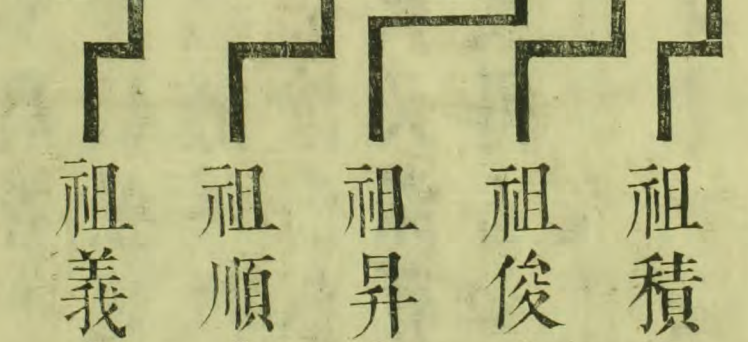 祖積
祖俊
祖昇
祖順
祖義